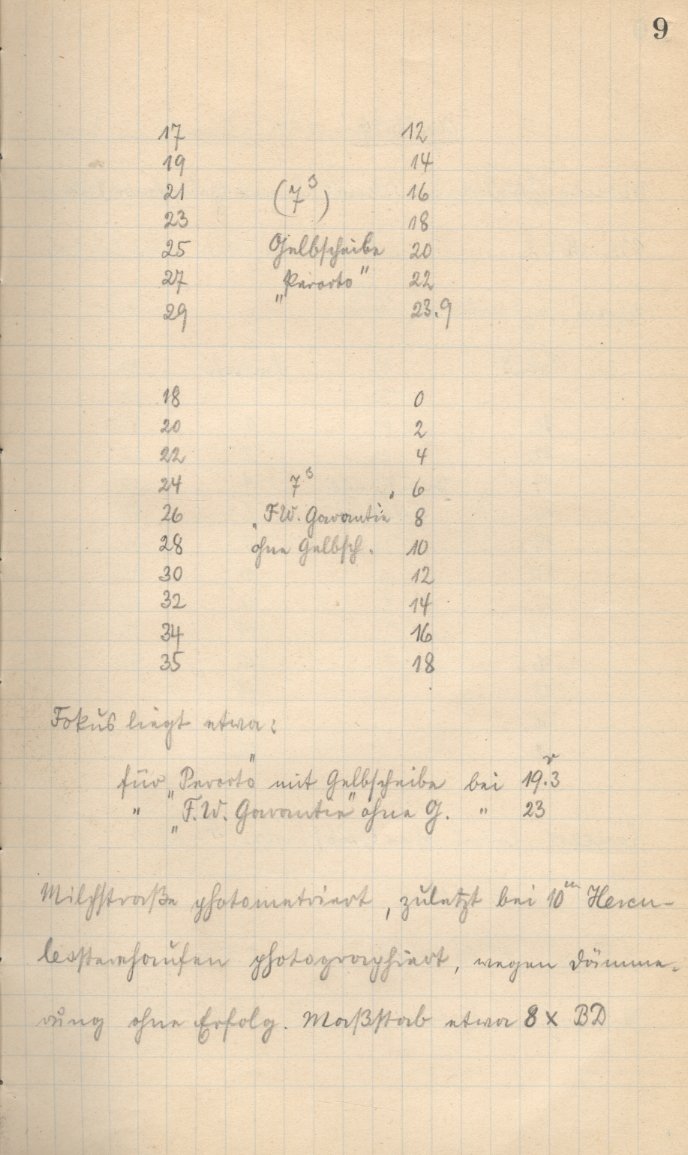 9
17 12
19 14
21 (7³) 16
23 18
25 Gelbscheibe 20
27 „Perorto" 22
29 23.9
18 0
20 2
22 4
24 7³ 6
26 „F.W. Garantie" 8
28 ohne Gelbsch. 10
30 12
32 14
34 16
35 18
Fokus liegt etwa:
für „Perorto" mit Gelbscheibe bei 19.3
" „F.W. Garantie" ohne G. " 23
Milchstraße photometriert, zuletzt bei 10ᵐ Hercu-
lessternhaufen photographiert, wegen Dämme-
rung ohne Erfolg. Maßstab etwa 8 x BD